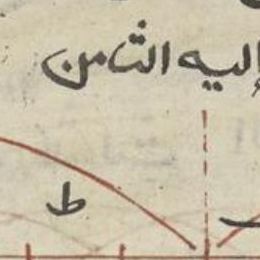 إليه الثامن
ط